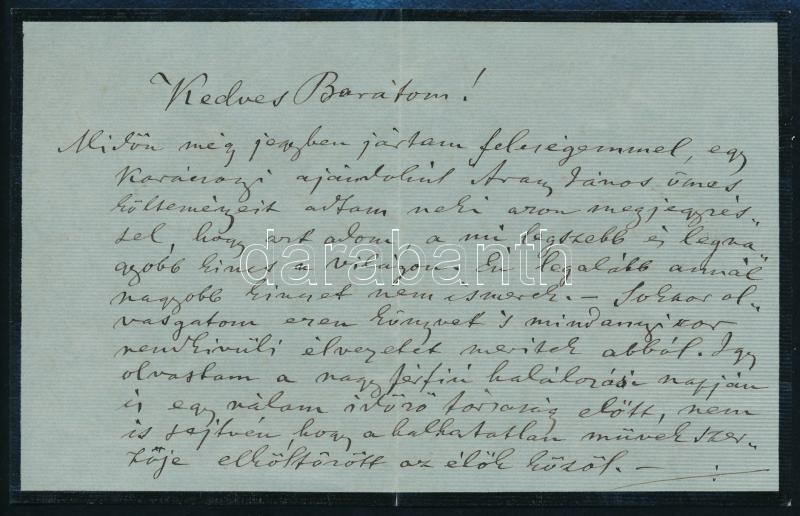 Kedves Barátom!
Midőn még jegyben jártam feleségemmel, egy
karácsonyi ajándokúl Arany János össes
költeményeit adtam neki azon megjegyzés„
sel, hogy azt adom, a mi legszebb és legna„
gyobb kincs a világon. Én legalább annál
nagyobb kincset nem ismerek. – Sokszor ol„
vasgatom ezen könyvet s mindannyiszor
rendkivüli élvezetet meritek abból. Igy
olvastam a nagy férfiú halálozási napján
is egy nálam időző társaság előtt, nem
is sejtvén, hogy a halhatatlan művek szer„
zője elköltözött az élők közöl. –
darabanth